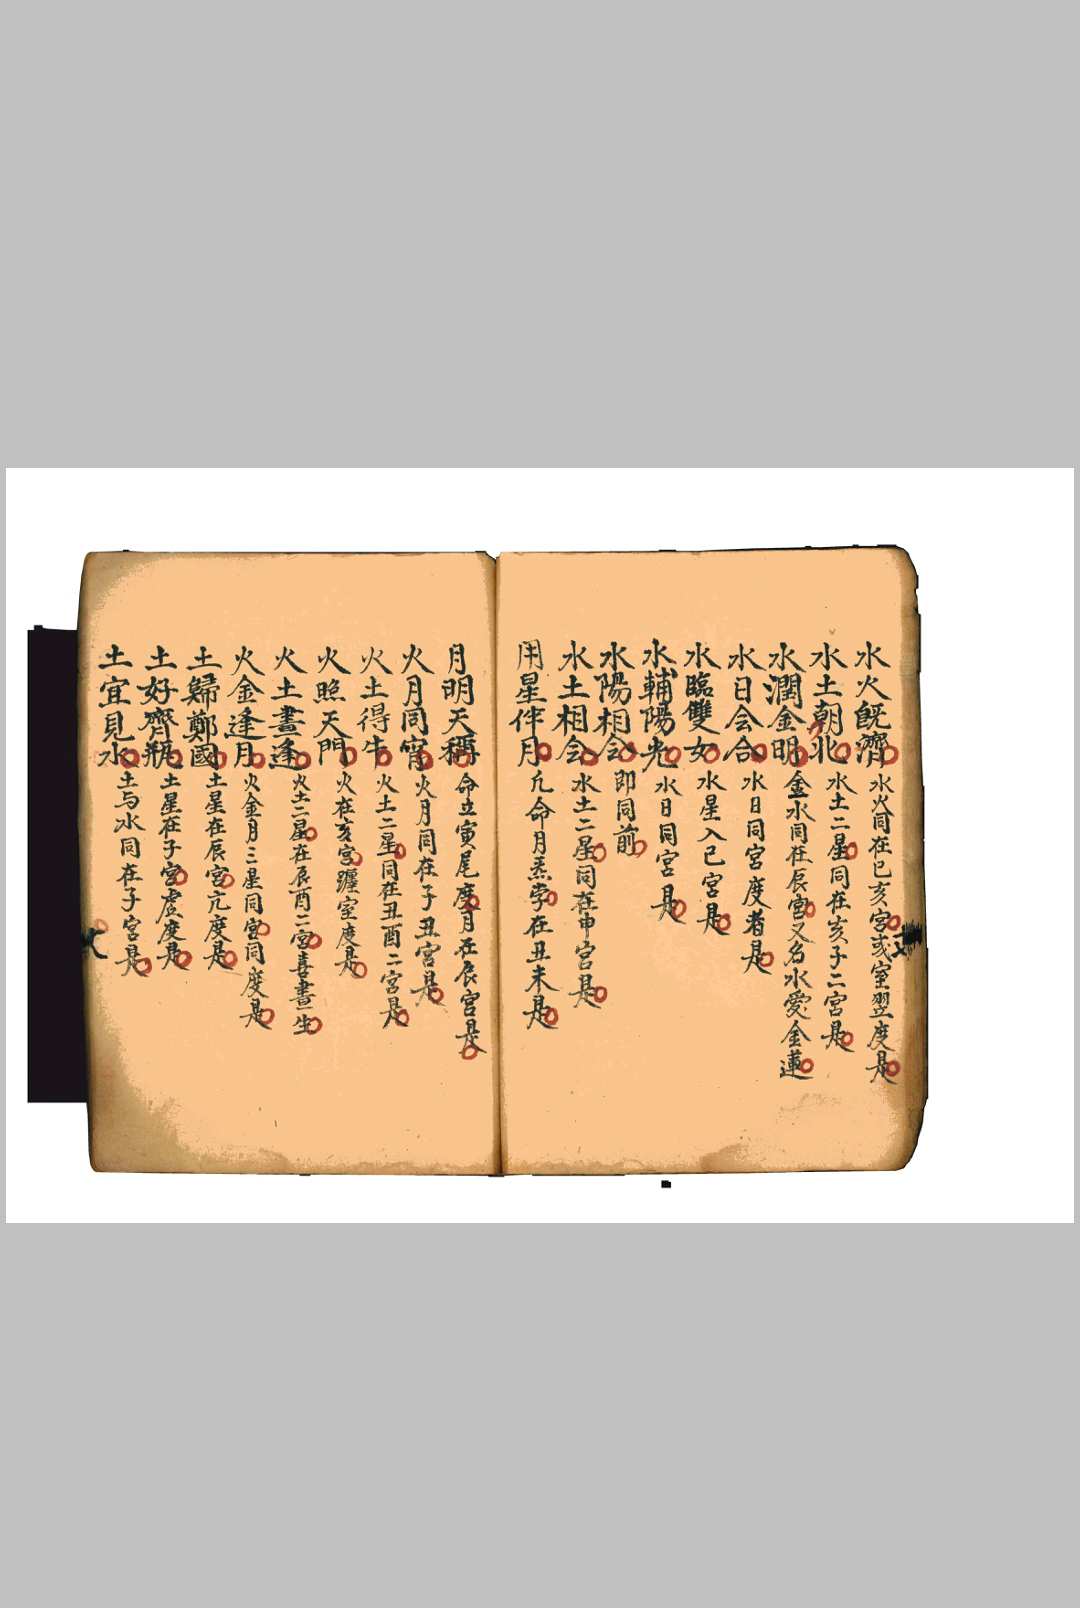 水火既濟 水火同在巳亥宮或室翌度是
水土朝北 水土二星同在亥子二宮是
水潤金明 金水同在辰宮又名水愛金蓮
水日会合 水日同宮度者是
水臨雙女 水星入巳宮是
水輔陽光 水日同宮是
水陽相会 即同前
水土相会 水土二星同在申宮是
用星伴月 凢命月炁孛在丑未是
月明天稱 命立寅尾度月在辰宮是
火月同宵 火月同在子丑宮是
火土得牛 火土二星同在丑酉二宮是
火照天門 火在亥宮躔室度是
火土畫逢 火土二星在辰酉二宮喜晝生
火金逢月 火金月三星同宮同度是
土歸鄭國 土星在辰宮亢度是
土好齊瓶 土星在子宮虛度是
土宜見水 土与水同在子宮是